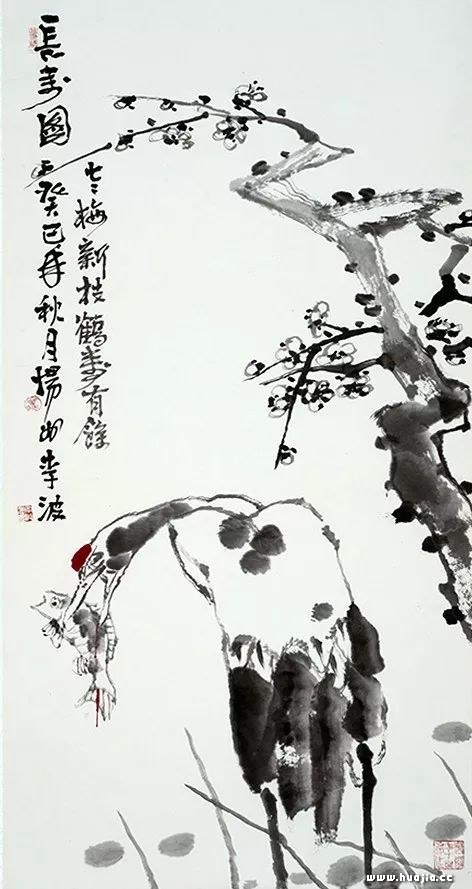 長壽圖 癸巳年秋月揚州李波
老梅新枝鶴壽有餘
www.huajia.cc